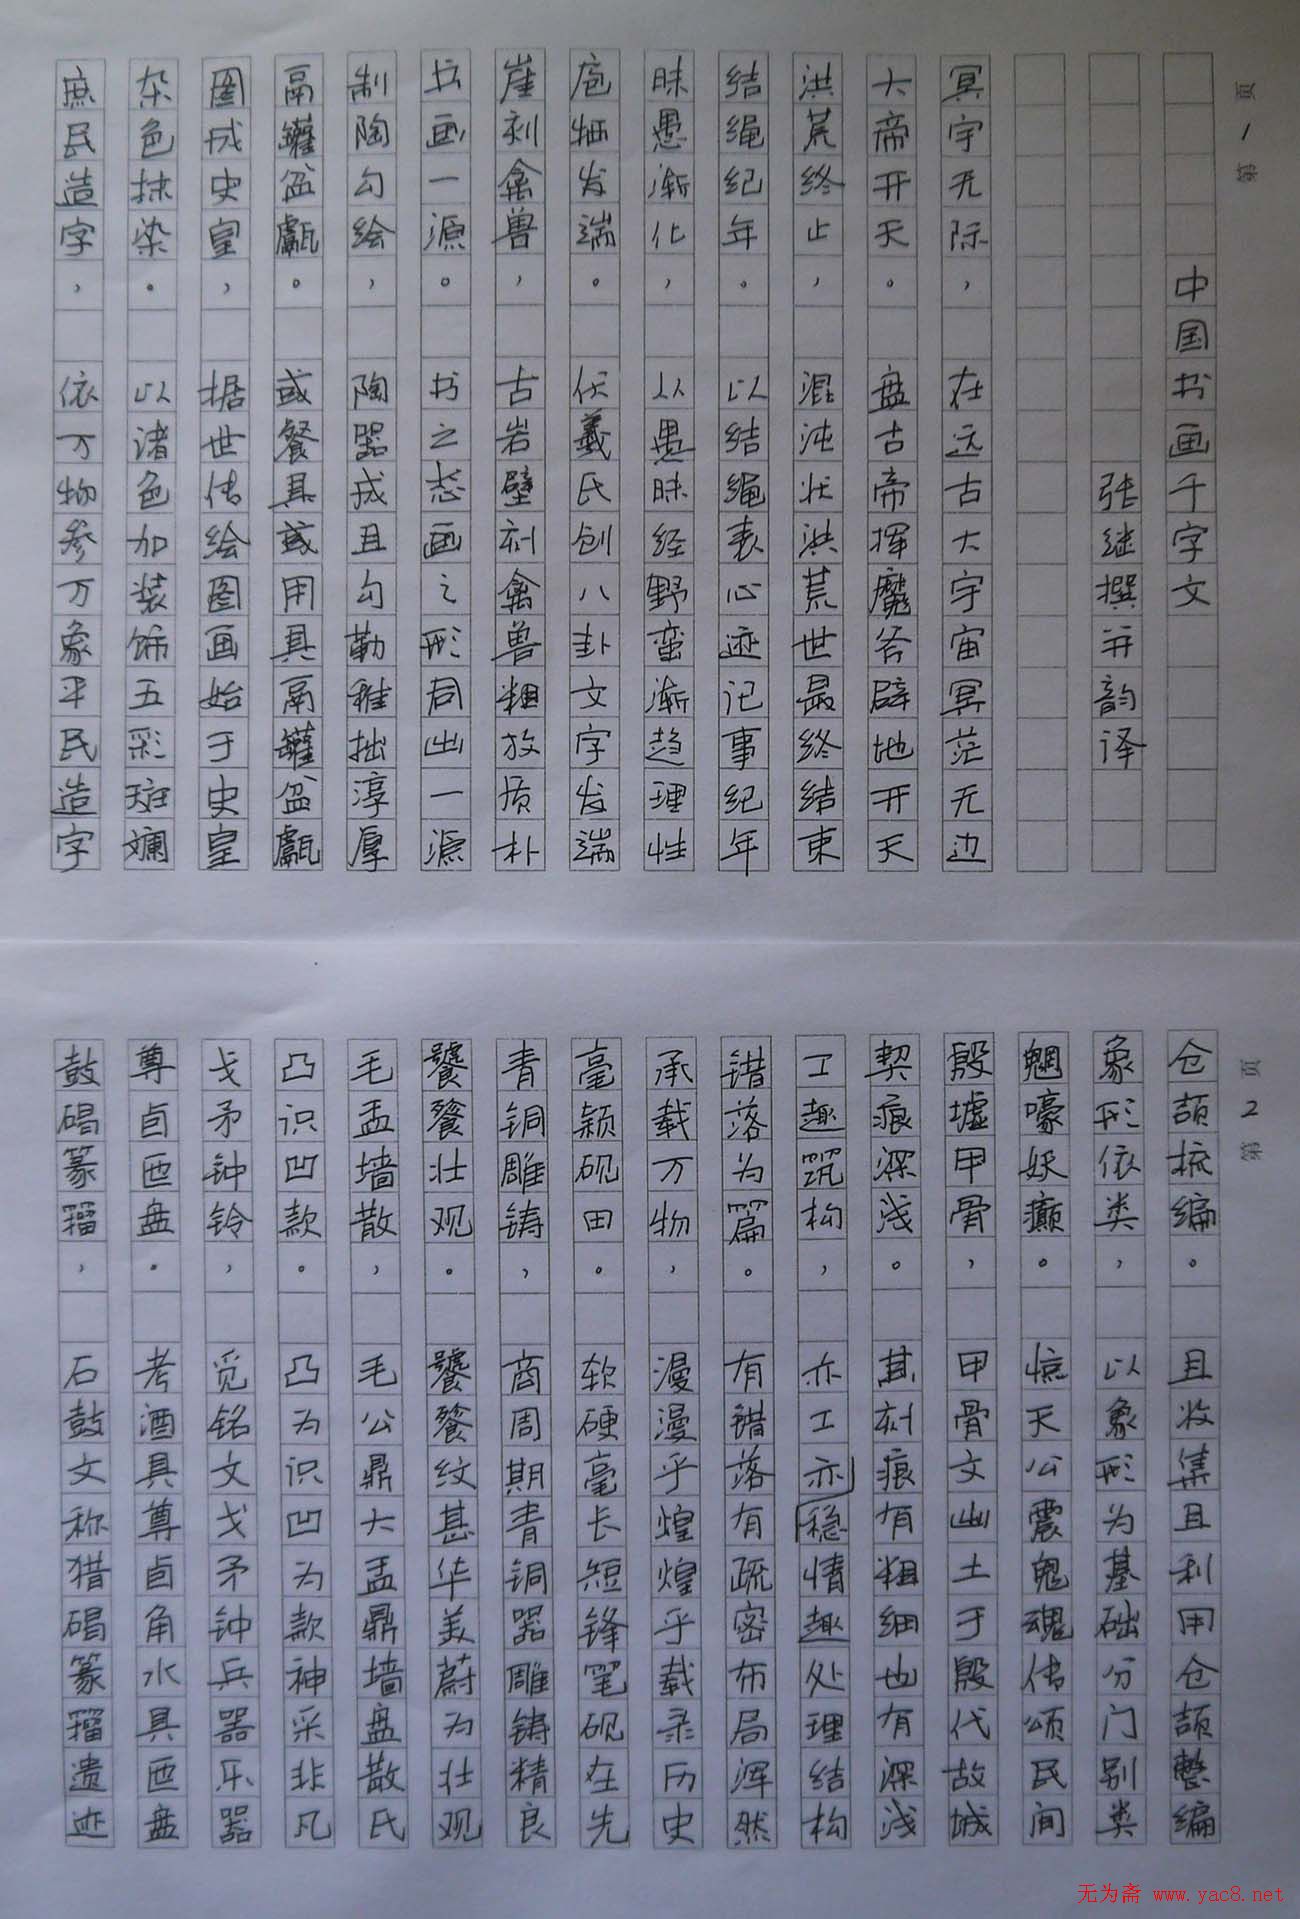 第1页
中国书画千字文
张继撰并韵译
冥宇无际，在远古大宇宙冥茫无边
大帝开天。盘古帝挥魔斧辟地开天
洪荒终止，混沌状洪荒世最终结束
结绳纪年。以结绳表心迹记事纪年
昧愚渐化，从愚昧经野蛮渐趋理性
庖牺发端。伏羲氏创八卦文字发端
崖刹禽兽，古岩壁刻禽兽粗放质朴
书画一源。书之态画之形同出一源
制陶勾绘，陶器成且勾勒稚拙淳厚
鬲罐盆甗。或餐具或用具鬲罐盆甗
图成史皇，据世传绘图画始于史皇
杂色抹染。以诸色加装饰五彩斑斓
庶民造字，依万物参万象平民造字
第2页
仓颉梳编。且收集且利用仓颉整编
象形依类，以象形为基础分门别类
魍嚎妖癫。惊天公震鬼魂传颂民间
殷墟甲骨，甲骨文出土于殷代故城
契痕深浅。其刻痕有粗细也有深浅
工趣筑构，亦工亦稳情趣处理结构
错落为篇。有错落有疏密布局浑然
承载万物，漫漫乎煌煌乎载录历史
毫颖砚田。软硬毫长短锋笔砚在先
青铜雕铸，商周期青铜器雕铸精良
饕餮壮观。饕餮纹甚华美蔚为壮观
毛盂墙散，毛公鼎大盂鼎墙盘散氏
凸识凹款。凸为识凹为款神采非凡
戈矛钟铃，觅铭文戈矛钟兵器乐器
尊卣匜盘。考酒具尊卣角水具匜盘
鼓碣篆籀，石鼓文称猎碣篆籀遗迹
无为斋 www.yac8.net